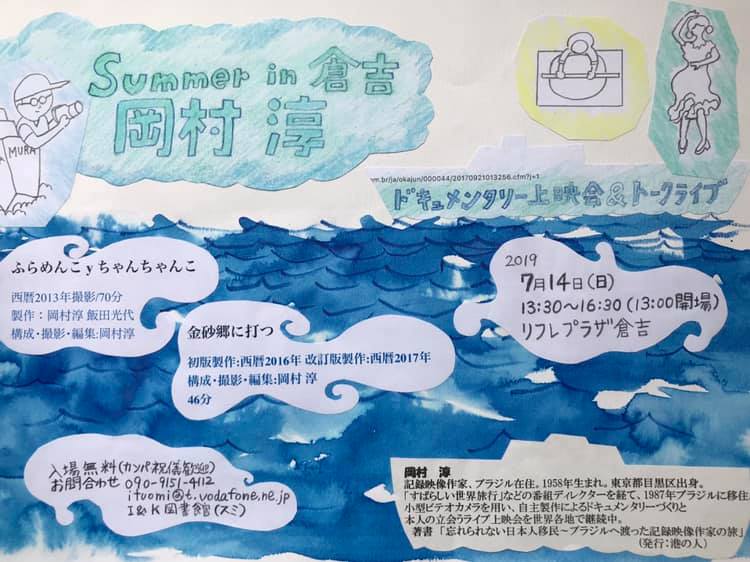 Summer in 倉吉
岡村 淳
MURA
vm.br/ja/okajun/000044/20170921013256.cfm?j=1
ドキュメンタリー上映会&トークライブ
ふらめんこyちゃんちゃんこ
西暦2013年撮影/70分
製作:岡村淳 飯田光代
構成・撮影・編集:岡村淳
金砂郷に打つ
初版製作:西暦2016年 改訂版製作:西暦2017年
構成・撮影・編集:岡村 淳
46分
2019
7月14日(日)
13:30〜16:30(13:00開場)
リフレプラザ倉吉
入場無料(カンパ祝儀歓迎)
お問合わせ 090-9151-4112
ituomi@t.vodafone.ne.jp
I&K図書館(スミ)
岡村 淳
記録映像作家、ブラジル在住。1958年生まれ。東京都目黒区出身。
「すばらしい世界旅行」などの番組ディレクターを経て、1987年ブラジルに移住。
小型ビデオカメラを用い、自主製作によるドキュメンタリーづくりと
本人の立会うライブ上映会を世界各地で継続中。
著書 「忘れられない日本人移民〜ブラジルへ渡った記録映像作家の旅」
(発行:港の人)